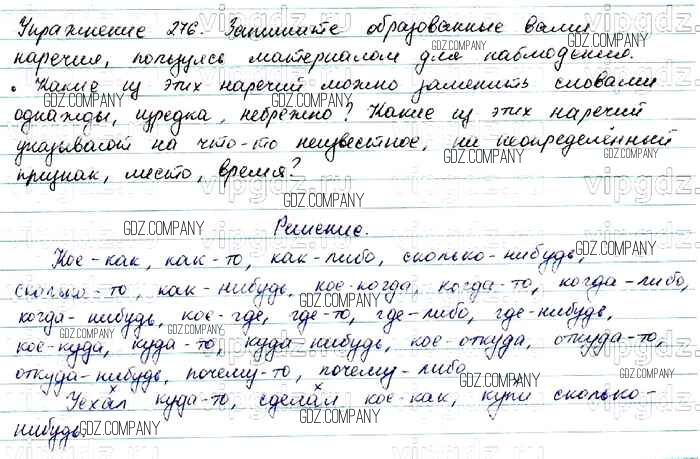 Упражнение 276. Запишите образованные вами
наречия, пользуясь материалом для наблюдений.
• Какие из этих наречий можно заменить словами
однажды, изредка, небрежно? Какие из этих наречий
указывают на что-то неизвестное, на неопределённый
признак, место, время?
Решение.
Кое-как, как-то, как-либо, сколько-нибудь,
сколько-то, как-нибудь, кое-когда, когда-то, когда-либо,
когда-нибудь, кое-где, где-то, где-либо, где-нибудь,
кое-куда, куда-то, куда-нибудь, кое-откуда, откуда-то,
откуда-нибудь, почему-то, почему-либо.
Уехал куда-то, сделал кое-как, купи сколько-
нибудь.
GDZ.COMPANY
vipgdz.ru